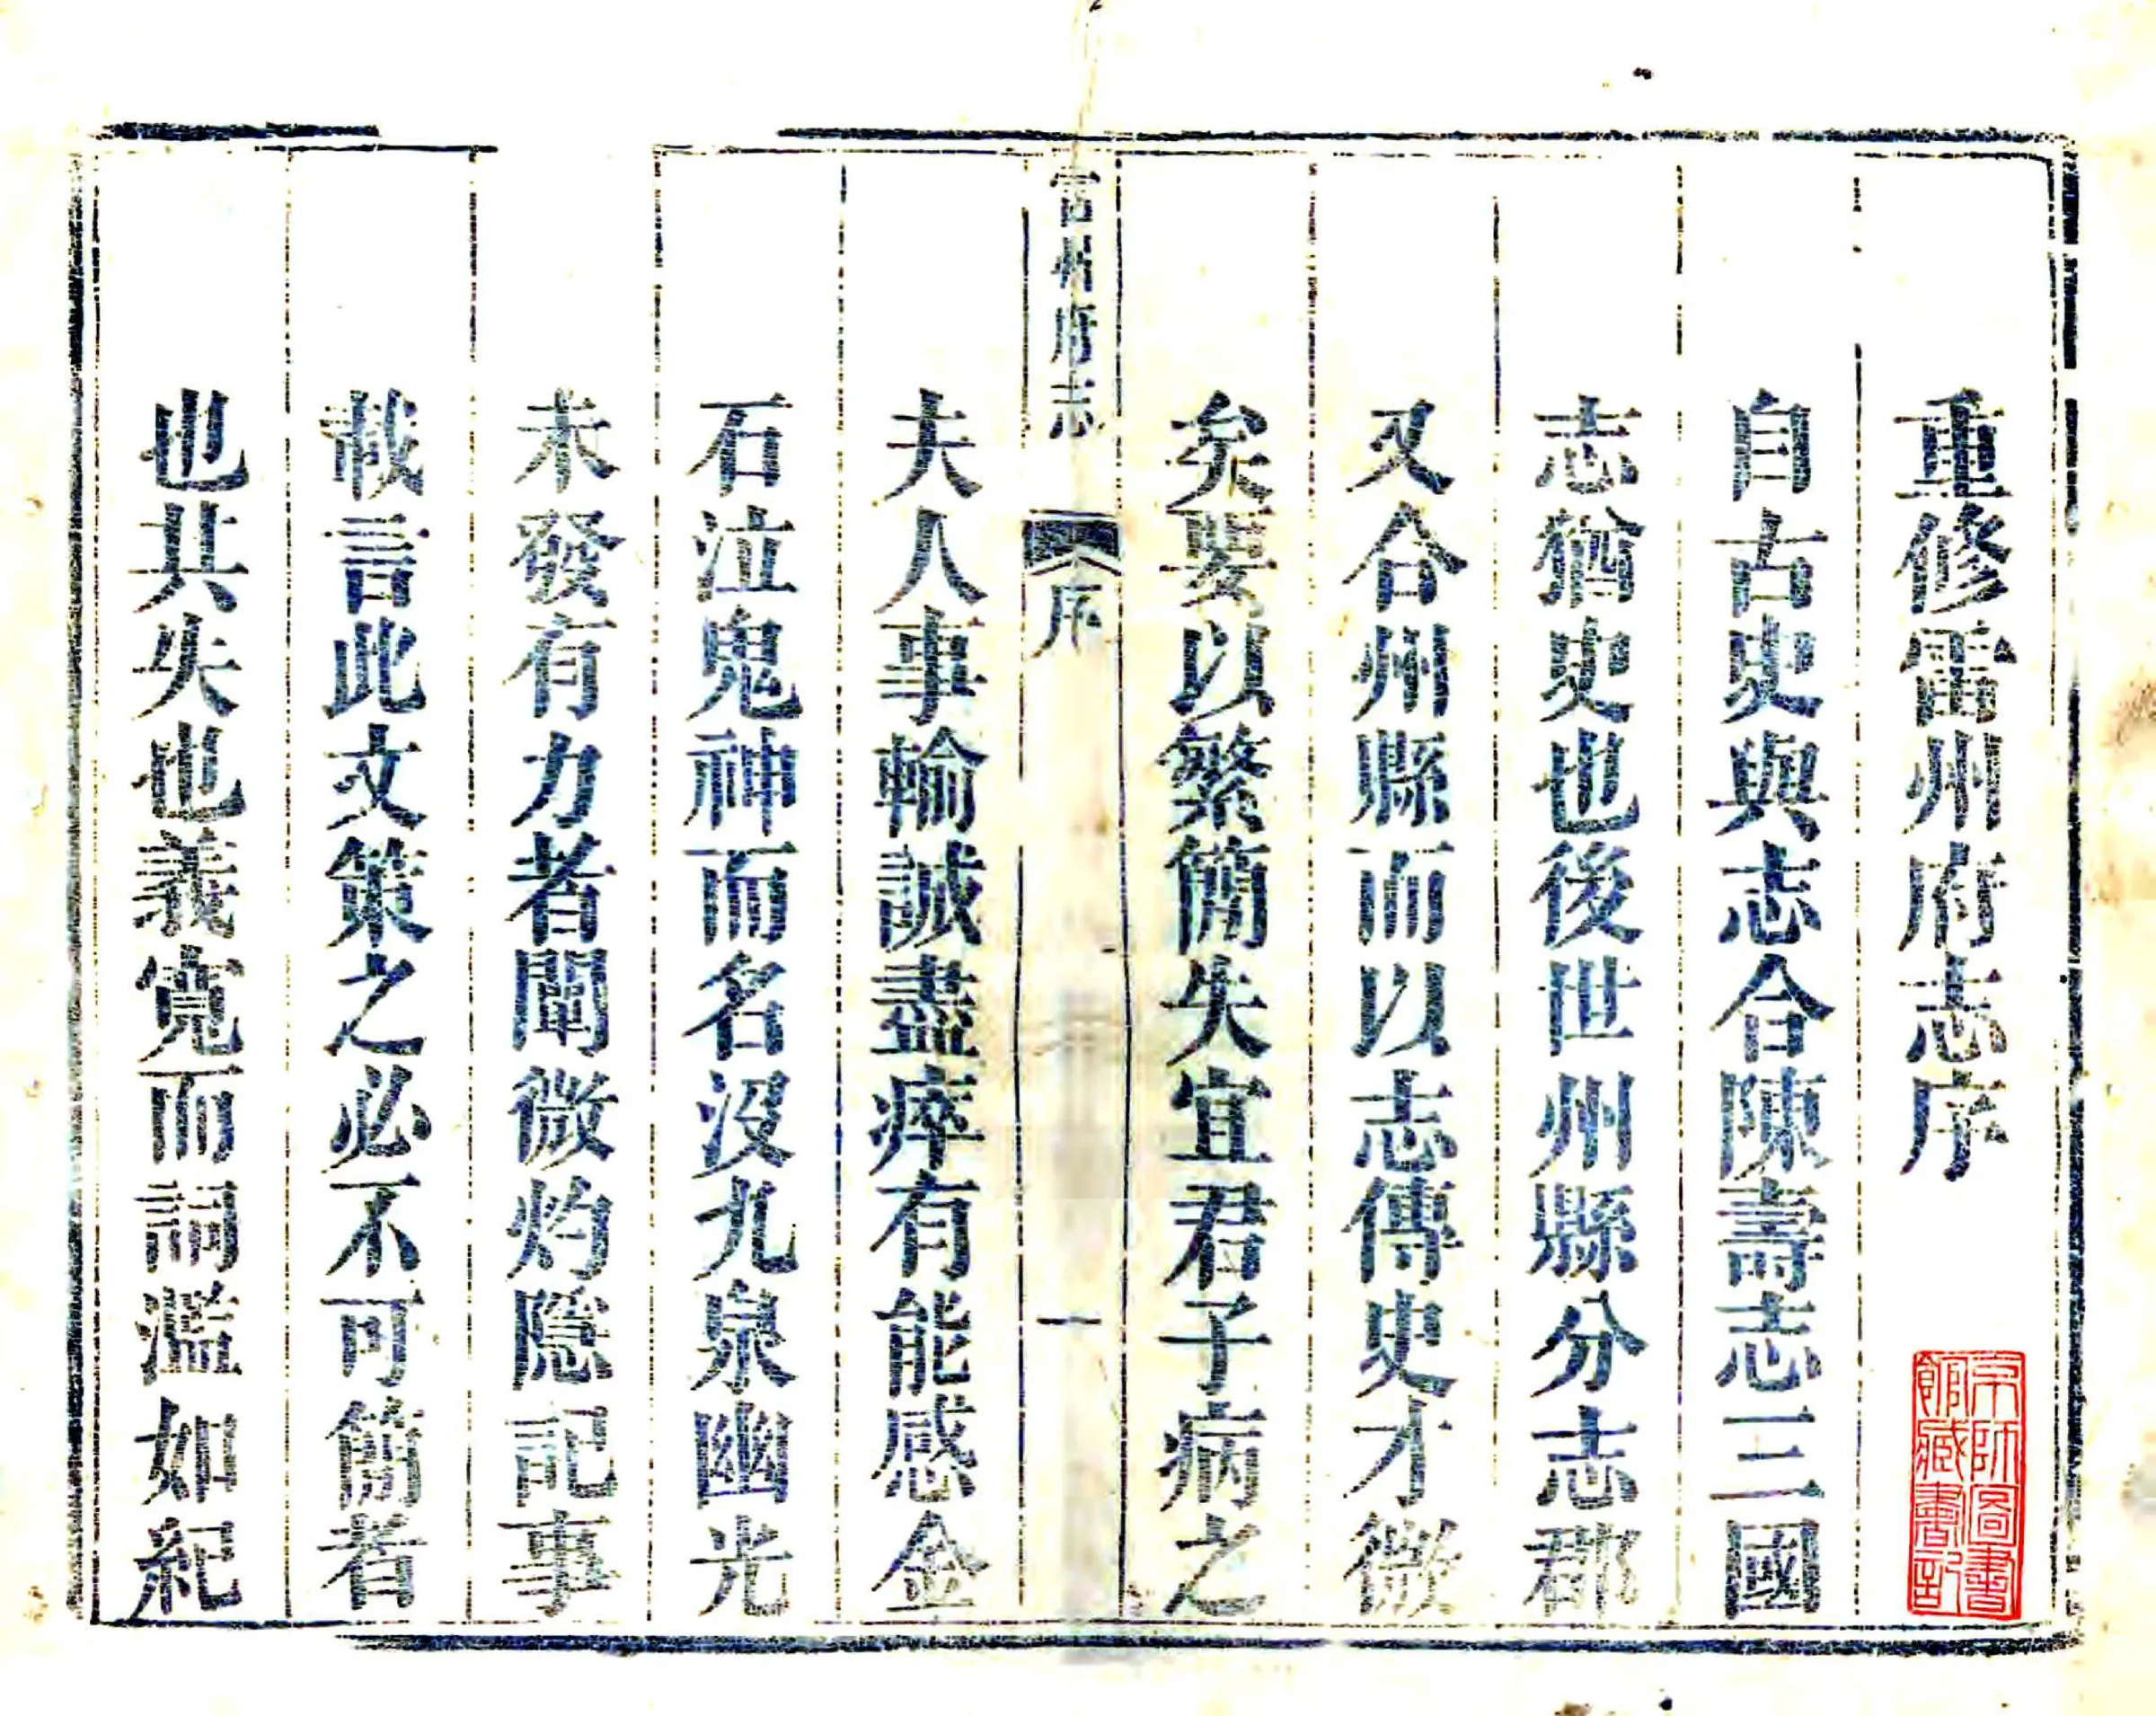 重修雷州府志序
自古史與志合陳壽志三國
志猶史也後世州縣分志郡
又合州縣而以志傳史才微
矣要以繁簡失宜君子病之
雷州府志 序 一
夫人事輸誠盡瘁有能感金
石泣鬼神而名沒九泉幽光
未發有力者闡微灼隱記事
載言此文策之必不可簡者
也其失也義寬而詞濫如紀
京師圖書
館藏書記